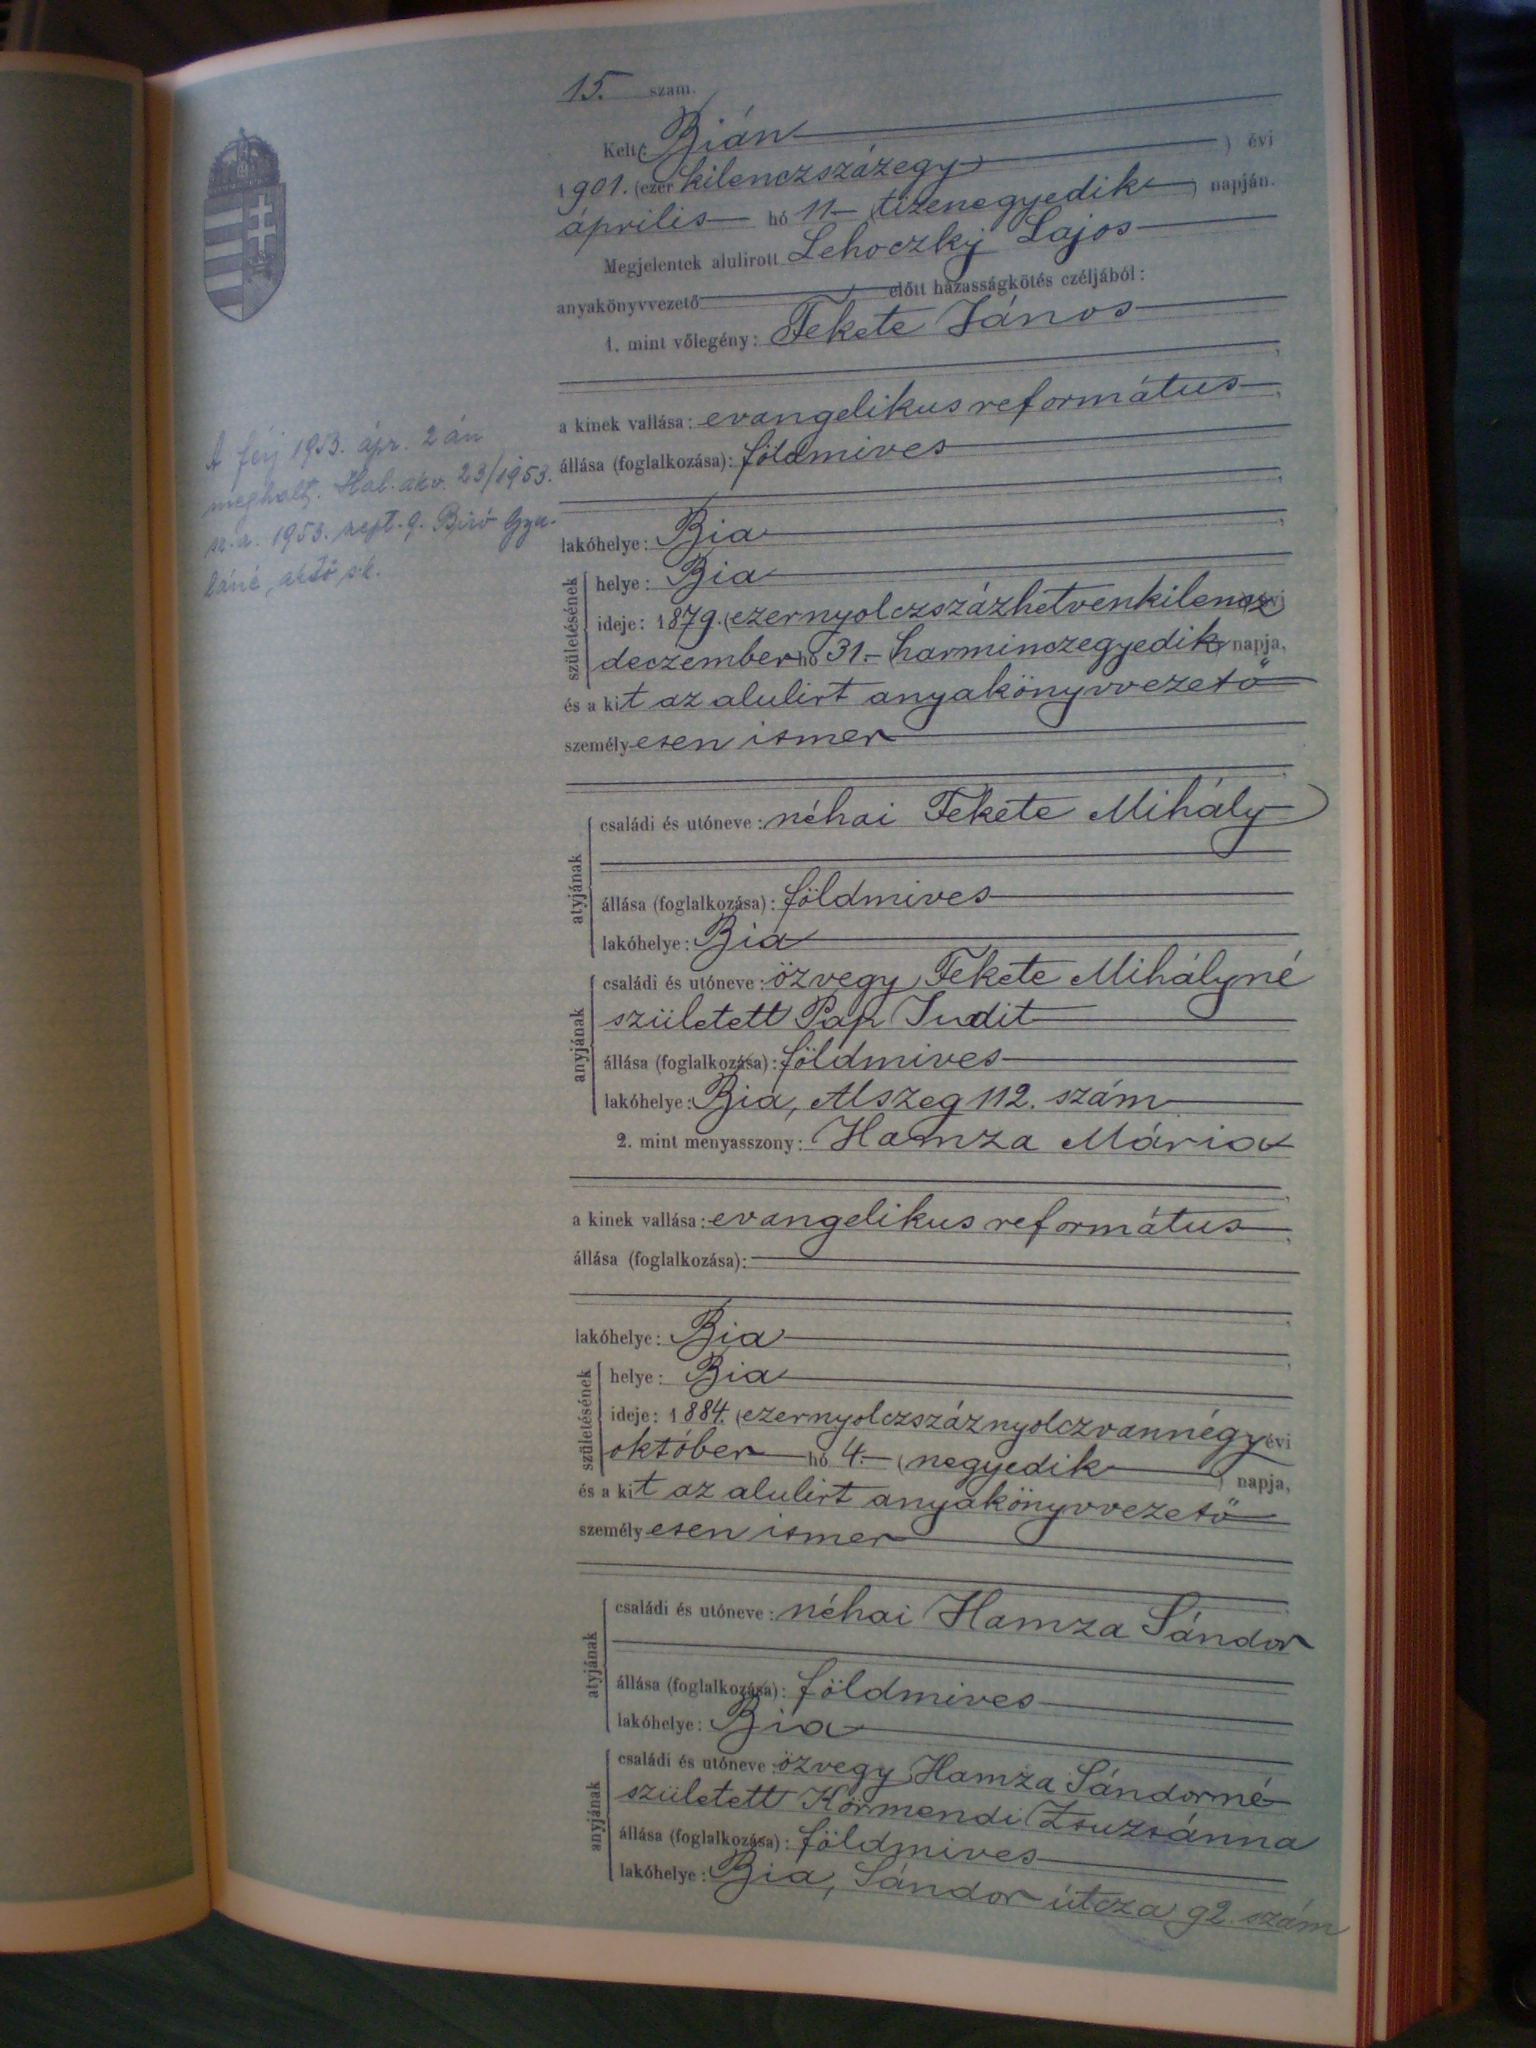 15. szám.
Kelt Bián
1901. (ezer kilenczszázegy) évi
április hó 11 (tizenegyedik) napján.
Megjelentek alulirott Lehoczky Lajos
anyakönyvvezető előtt házasságkötés czéljából:
1. mint vőlegény: Fekete János
a kinek vallása: evangelikus református
állása (foglalkozása): földmives
lakóhelye: Bia
születésének
helye: Bia
ideje: 1879. (ezernyolczszázhetvenkilencz) évi
deczember hó 31. (harminczegyedik) napja,
és a kit az alulirt anyakönyvvezető
személyesen ismer
atyjának
családi és utóneve: néhai Fekete Mihály
állása (foglalkozása): földmives
lakóhelye: Bia
anyjának
családi és utóneve: özvegy Fekete Mihályné
született Pap Judit
állása (foglalkozása): földmives
lakóhelye: Bia, Alszeg 112. szám
2. mint menyasszony: Hamza Mária
a kinek vallása: evangelikus református
állása (foglalkozása):
lakóhelye: Bia
születésének
helye: Bia
ideje: 1884. (ezernyolczszáznyolczvannégy évi
október hó 4. (negyedik) napja,
és a kit az alulirt anyakönyvvezető
személyesen ismer
atyjának
családi és utóneve: néhai Hamza Sándor
állása (foglalkozása): földmives
lakóhelye: Bia
anyjának
családi és utóneve: özvegy Hamza Sándorné
született Körmendi Zsuzsánna
állása (foglalkozása): földmives
lakóhelye: Bia, Sándor útcza 92. szám
A férj 1953. ápr. 2 án
meghalt. Hal. akv. 23/1953.
1953. sept. 9. Biró Gyu-
láné